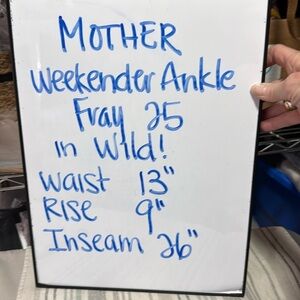 MOTHER
Weekender Ankle
Fray 25
in Wild!
Waist 13"
Rise 9"
Inseam 26"